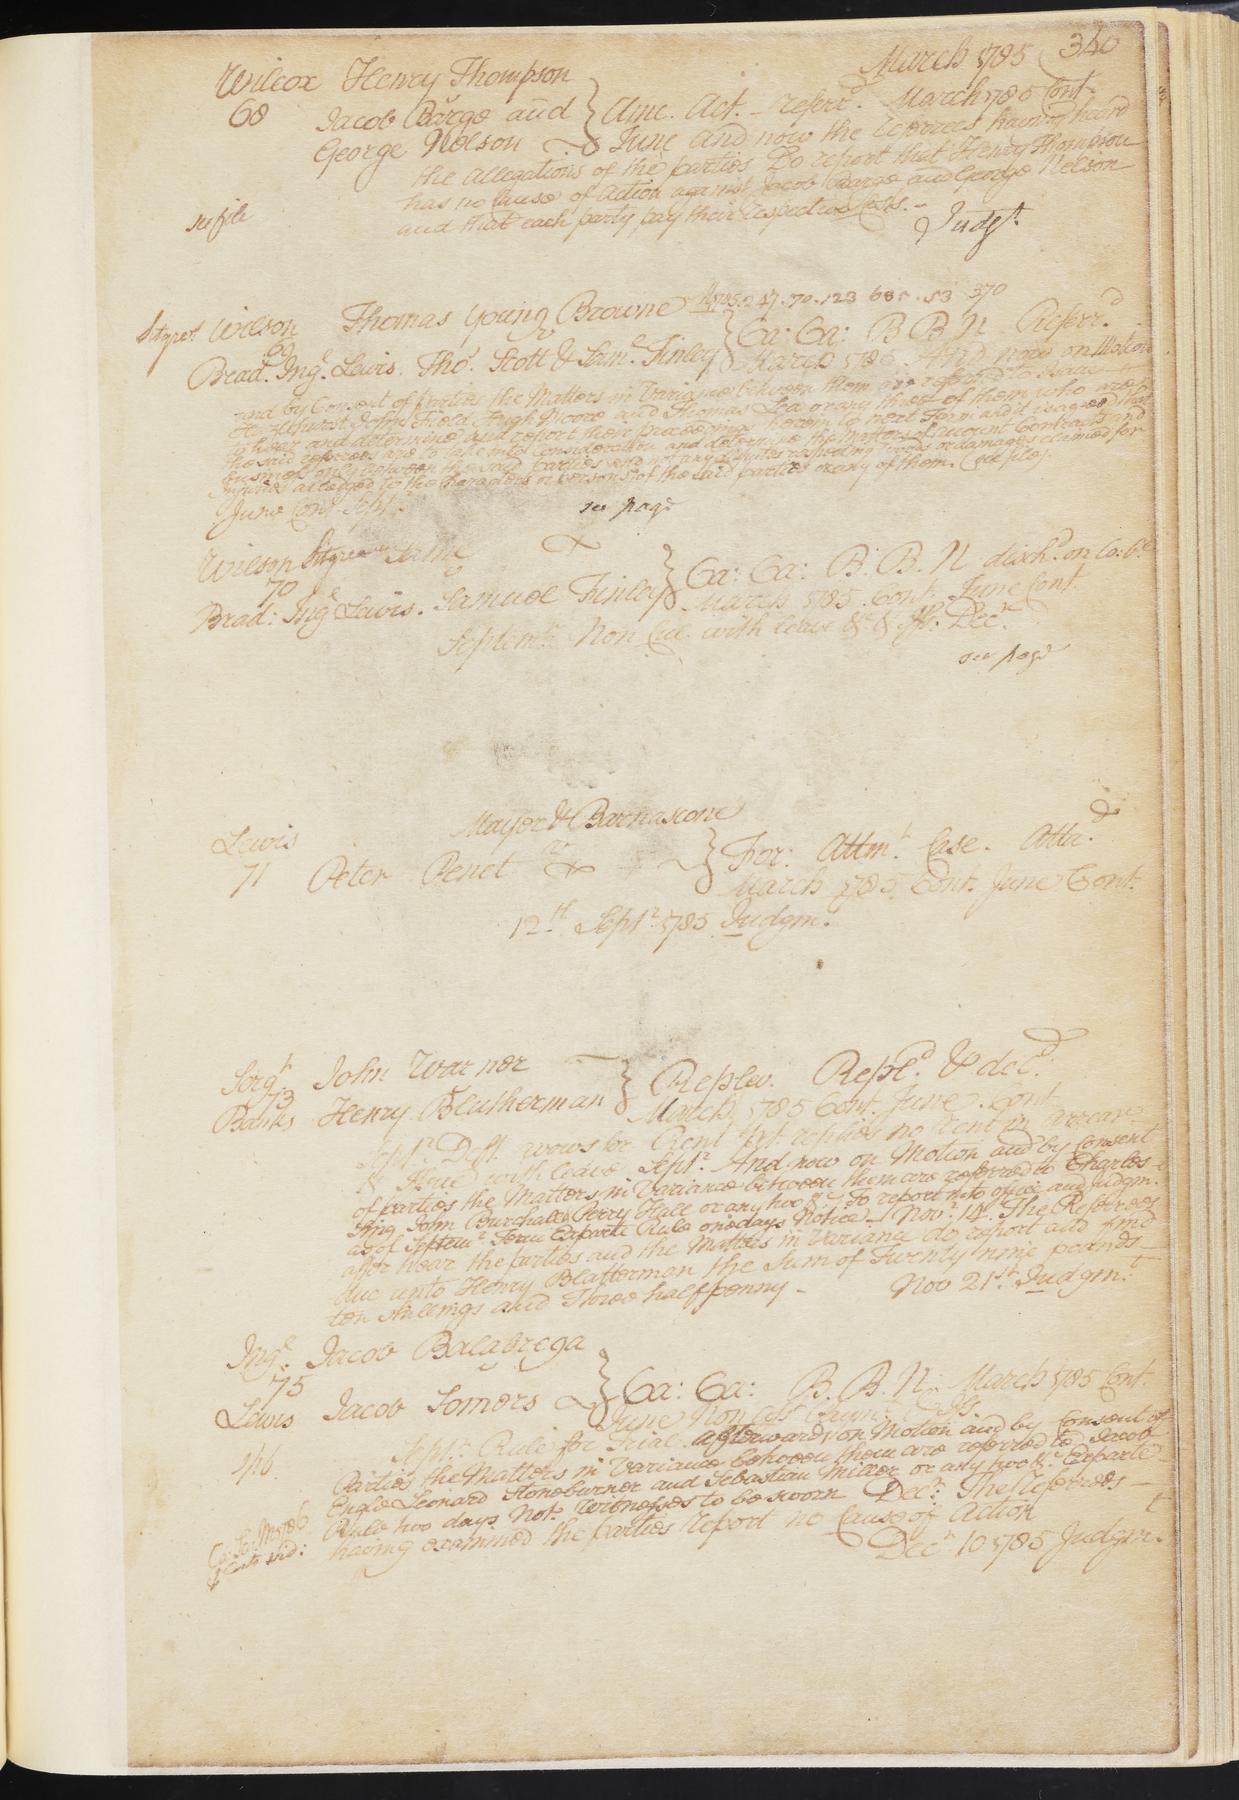 March 1785 340
Wilcox Henry Thompson
68 Jacob Barge and } Amc. Act. - referr.d March 1785 Cont.
George Nelson June and now the referees having heard
the allegations of the parties Do report that Henry Thompson
has no Cause of Action against Jacob Barge and George Nelson
and that each party pay their respective Costs. -
see file Judgt.
Wilson Thomas Young Browne 370
69 Ca: Ca: B B N Referr.d
Brad. Ing.l Lewis. Tho.s Scott & Sam.l Finley } March 1785. And now on Motion
and by Consent of parties the Matters in Variance between them are referred to Isaac
Hazlehurst John Field Hugh Moore and Thomas Lea or any three of them who are
to hear and determine and report their proceedings herein to next Term and it is agreed that
the said referees are to take into Consideration and determine the matters of account Contracts and
business only between the said parties and not any disputes respecting words or damages claimed for
Injuries alledged to the Characters or persons of the said parties or any of them. (see file)
June Cont. Sept.r see page
Wilson Same
70 v } Ca: Ca: B. B. N disch.d on Co: b.l
Brad: Ing.l Lewis. Samuel Finley March 1785. Cont. June Cont.
Septem.r Non Cul. with leave &c & Iss. Dec.r
see page
Lewis Mayer & Barnascone
71 Peter Penet } For: Attm.t Case. Atta.d
March 1785 Cont. June Cont.
12th Sept.r 1785 Judgm.t
Serg.t John Warner
73 } Replev. Repl.d & del.d
Banks Henry Bleatherman March 1785 Cont. June. Cont.
Sept.r Deft. avows for Rent Plt. replies no rent in arrear
& Issue with leave Sept.r And now on Motion and by Consent
of parties the Matters in Variance between them are referred to Charles
King John Burchall Perry Hall or any two &c To report into office and Judgm.t
as of Septem.r Term Exparte Rule one days Notice - Nov.r 14. The Referees
after hear the parties and the Matters in Variance do report and find
due unto Henry Blatterman the Sum of Twenty nine pounds
ten shillings and Three halfpenny - Nov 21st Judgm.t
Ing.l Jacob Balabrega
75 } Ca: Ca: B. B. N: March 1785 Cont.
Lewis Jacob Somers June Non Ass.t
Sept.r Rule for Trial. afterwards on Motion and by Consent of
Parties the Matters in Variance between them are referred to Jacob
Engle Leonard Stoneburner and Sebastian Miller or any two &c Exparte
Rule two days Not.e Witnesses to be sworn Dec.r The Referees
having examined the parties report no Cause of Action
Dec.r 10 1785 Judgm.t